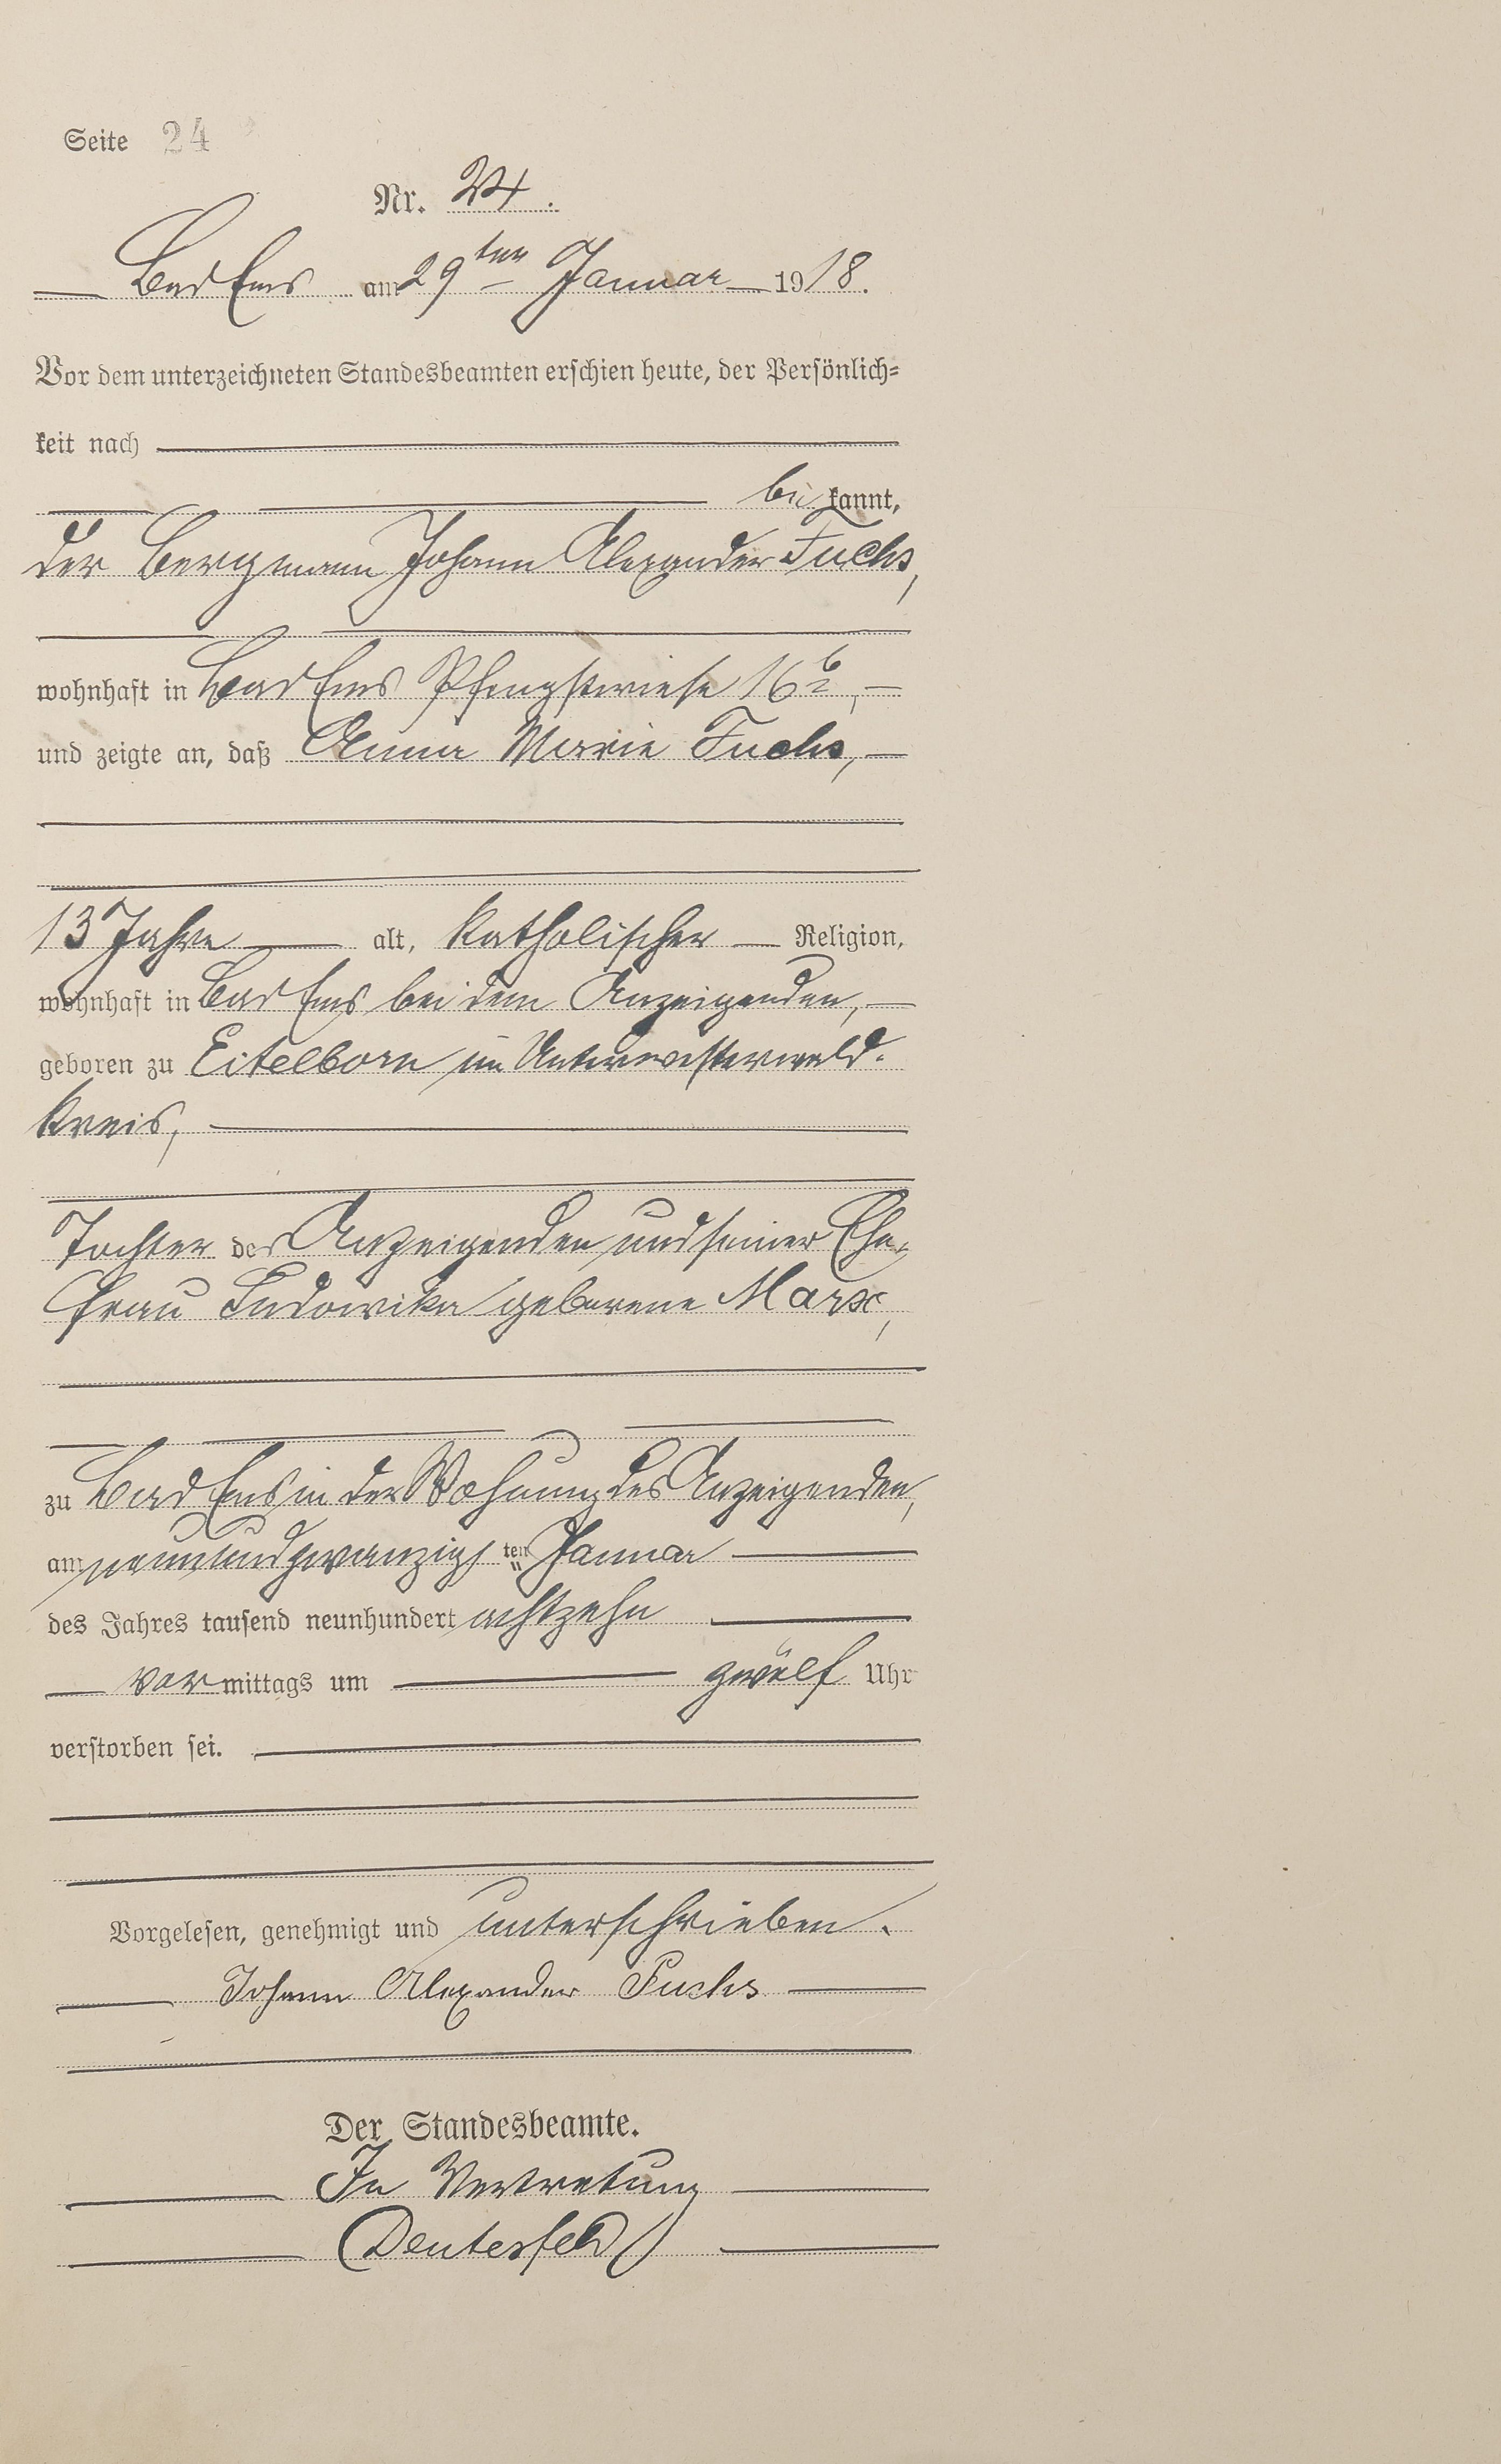 Seite 24
Nr. 24.
Bad Ems am 29ten Januar 1918.
Vor dem unterzeichneten Standesbeamten erschien heute, der Persönlich-
keit nach
bekannt,
der Bergmann Johann Alexander Fuchs,
wohnhaft in Bad Ems Pfingstwiese 16
und zeigte an, daß Anna Marie Fuchs,
13 Jahre alt, katholischer Religion,
wohnhaft in Bad Ems bei dem Anzeigenden,
geboren zu Eitelborn im Unterwesterwald-
kreis,
Tochter des Anzeigenden und seiner Ehe-
frau Ludowika geborene Marx,
zu Bad Ems in der Wohnung des Anzeigenden,
am neunundzwanzigsten Januar
des Jahres tausend neunhundert achtzehn
vormittags um zwölf Uhr
verstorben sei.
Vorgelesen, genehmigt und unterschrieben.
Johann Alexander Fuchs
Der Standesbeamte.
In Vertretung